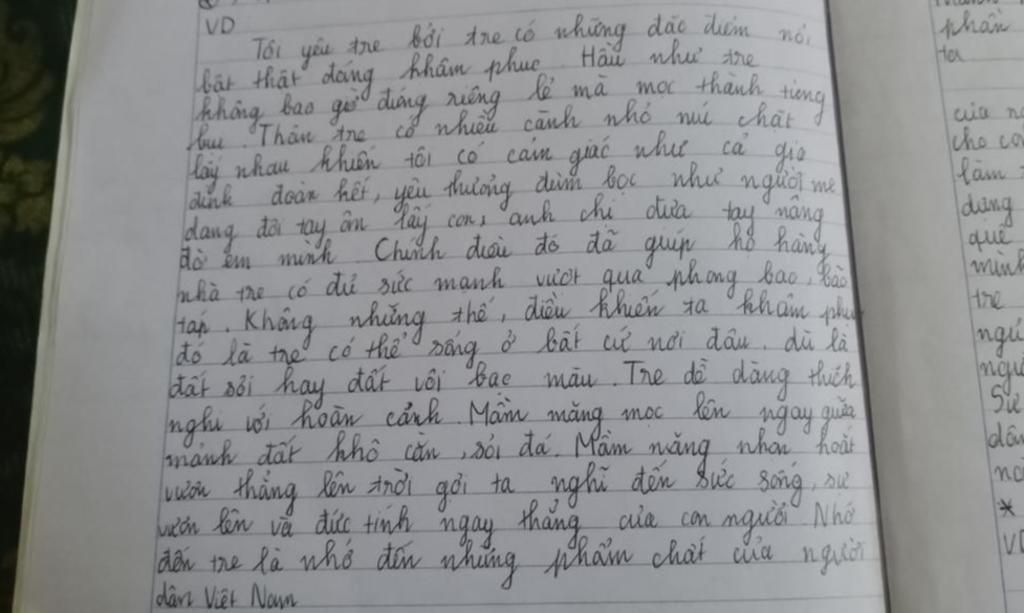 VD
Tôi yêu tre bởi tre có những đặc điểm nổi
bật thật đáng khâm phục. Hầu như tre
không bao giờ đứng riêng lẻ mà mọc thành từng
bụi. Thân tre có nhiều cành nhỏ níu chặt
lấy nhau khiến tôi có cảm giác như cả gia
đình đoàn kết, yêu thương đùm bọc như người mẹ
dang đôi tay ôm lấy con, anh chị đưa tay nâng
đỡ em mình Chính điều đó đã giúp họ hàng
nhà tre có đủ sức mạnh vượt qua phong bao, bão
táp. Không những thế, điều khiến ta khâm phục
đó là tre có thể sống ở bất cứ nơi đâu, dù là
đất sỏi hay đất vôi bạc màu. Tre dễ dàng thích
nghi với hoàn cảnh. Mầm măng mọc lên ngay giữa
mảnh đất khô cằn, sỏi đá. Mầm măng nhọn hoắt
vươn thẳng lên trời gợi ta nghĩ đến sức sống, sự
vươn lên và đức tính ngay thẳng của con người. Nhớ
đến tre là nhớ đến những phẩm chất của người
dân Việt Nam
phẩn
ta
của
cho
làm
dang
quê
mình
tre
Sự
*